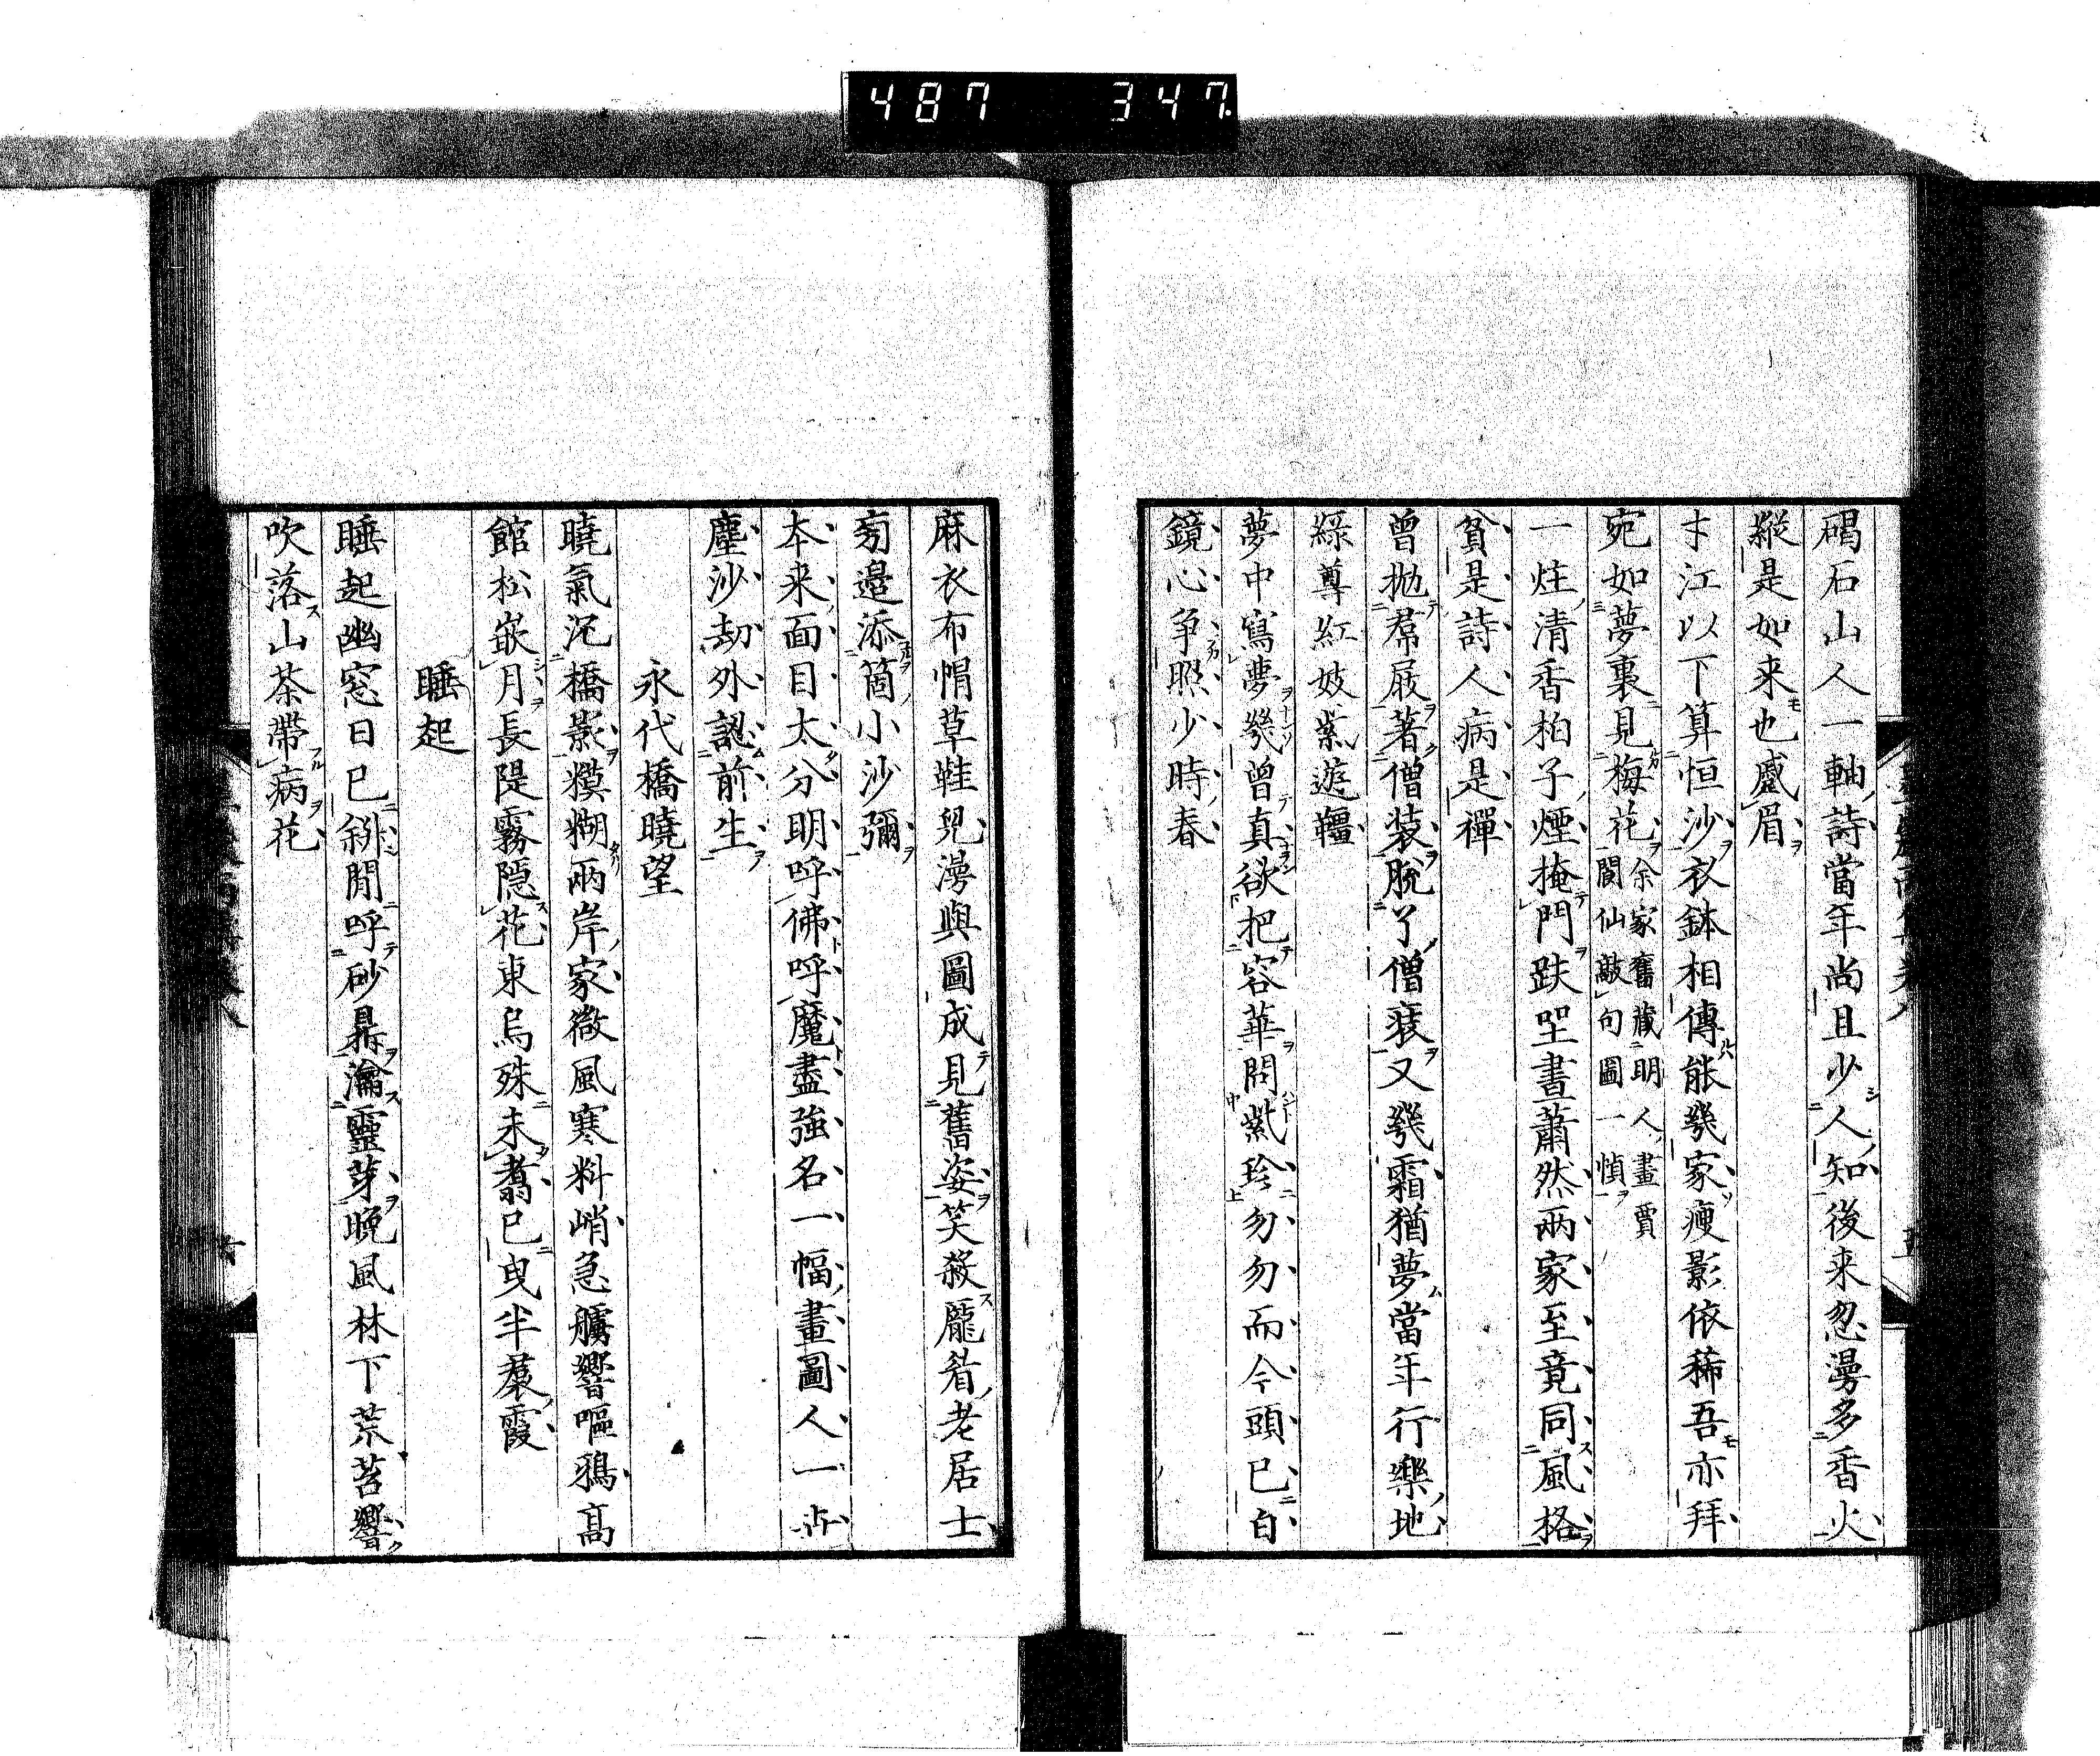 487 347
碣石山人一軸詩當年尚且少人知後来忽漫多香火
縱是如来也蹙眉
才江以下算恒沙衣鉢相傳能幾家瘦影依稀吾亦拜
宛如夢裏見梅花余家舊藏明人畫賈
閬仙敲句圖一幀
一炷清香柏子煙掩門趺坐晝蕭然兩家至竟同風格
貧是詩人病是禪
曾抛屐著僧装脱了僧裝又幾霜猶夢當年行樂地
綠尊紅妓紫遊韁
夢中寫夢幾曾真欲把容華問紫珍勿勿而今頭已白
鏡心爭照少時春
麻衣布帽草鞋兒漫與圖成見舊姿笑殺龐眉老居士
旁邉添箇小沙彌
本来面目太分明呼佛呼魔盡強名一幅畫圖人一
塵沙劫外認前生
永代橋曉望
曉氣沉橋影糢糊兩岸家微風寒料峭急艣響嘔鴉高
館松嵌月長隄霧隱花東烏殊未翥已曳半襲霞
睡起
睡起幽窓日已斜閒呼砂鼎瀹靈芽晚風林下荒苔響
吹落山茶帶病花